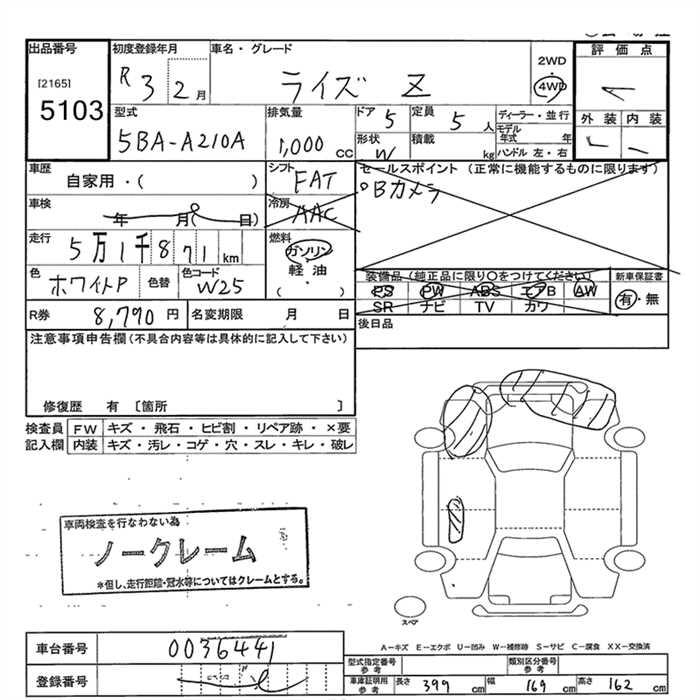 出品番号
[2165]
5103
初度登録年月
R 3 2月
車名・グレード
ライズ Z
2WD
・
4WD
評価点
外装 内装
型式
5BA-A210A
排気量
1,000 cc
ドア 5
定員 5人
形状 W
積載 kg
ディーラー・並行
モデル年式 年
ハンドル 左・右
車歴
自家用・( )
シフト
FAT
セールスポイント (正常に機能するものに限ります)
Bカメラ
車検
年 月( 日)
冷房
AAC
走行
5万1千871km
燃料
ガソリン
軽油
・
( )
色
ホワイトP
色替
色コード
W25
装備品(純正品に限り〇をつけてください)
PS PW ABS エアB AW
SR ナビ TV カワ
新車保証書
有・無
R券 8,790円
名変期限 月 日
後日品
注意事項申告欄(不具合内容等は具体的に記入して下さい)
修復歴 有 [箇所 ]
検査員記入欄
FW キズ・飛石・ヒビ割・リペア跡・×要
内装 キズ・汚レ・コゲ・穴・スレ・キレ・破レ
車両検査を行なわない為
ノークレーム
*但し、走行距離・冠水等についてはクレームとする。
スペア
A-キズ E-エクボ U-凹み W-補修跡 S-サビ C-腐食 XX-交換済
車台番号
0036441
登録番号
型式指定番号
参考
類別区分番号
参考
車庫証明用
参考
長さ 399 cm
幅 169 cm
高さ 162 cm